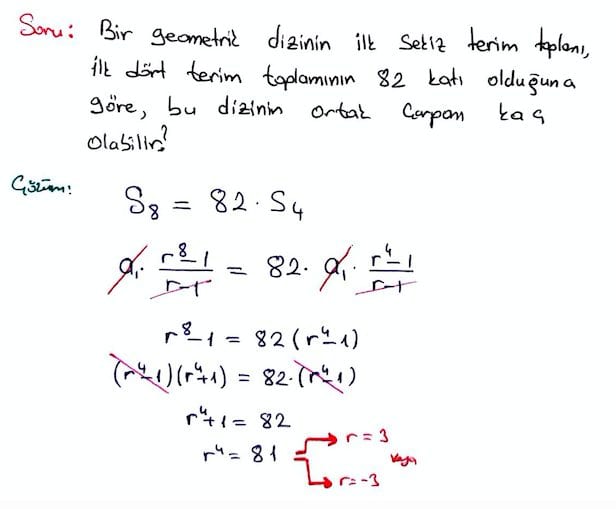 Soru: Bir geometrik dizinin ilk sekiz terim toplamı,
ilk dört terim toplamının 82 katı olduğuna
göre, bu dizinin ortak çarpanı kaç
olabilir?
Çözüm:
S₈ = 82 · S₄
a₁ · (r⁸-1)/(r-1) = 82 · a₁ · (r⁴-1)/(r-1)
r⁸-1 = 82(r⁴-1)
(r⁴-1)(r⁴+1) = 82·(r⁴-1)
r⁴+1 = 82
r⁴ = 81
r = 3
veya
r = -3